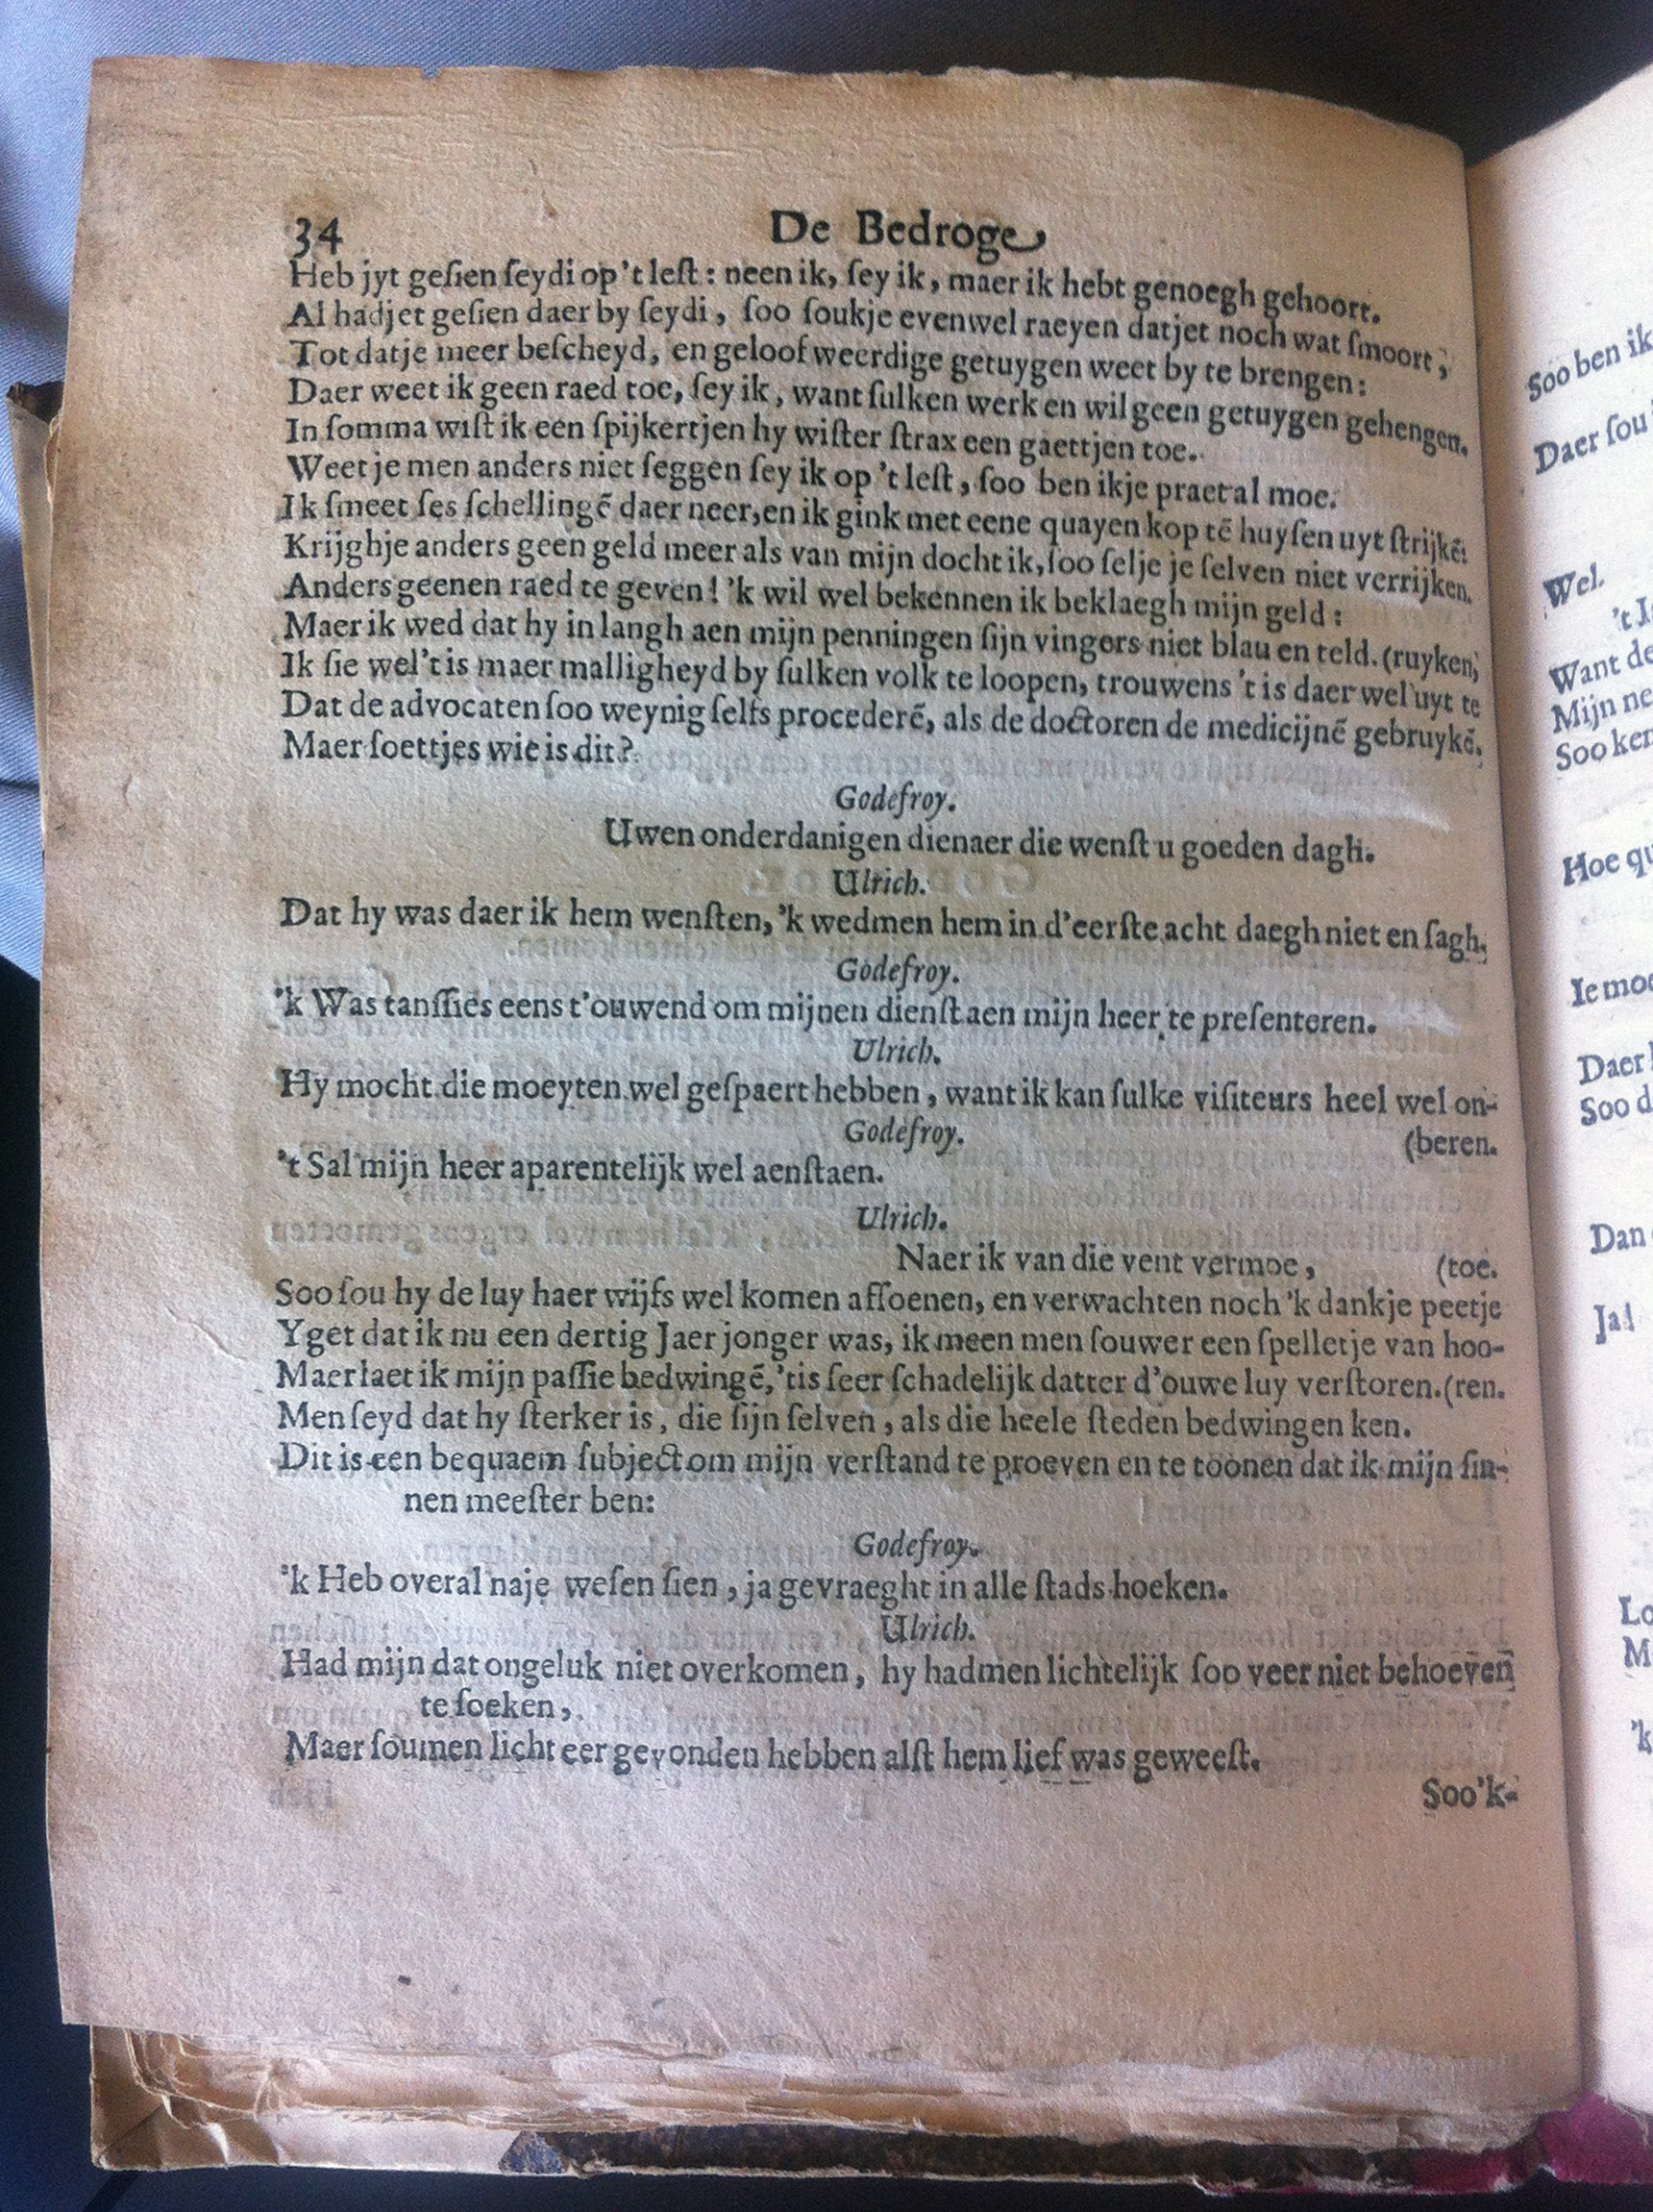 34 De Bedroge
Heb jyt geſien ſeydi op 't leſt: neen ik, ſey ik, maer ik hebt genoegh gehoort.
Al hadjet geſien daer by ſeydi, ſoo ſoukje evenwel raeyen datjet noch wat ſmoort,
Tot datje meer beſcheyd, en geloofweerdige getuygen weet by te brengen:
Daer weet ik geen raed toe, ſey ik, want ſulken werk en wil geen getuygen gehengen.
In ſomma wiſt ik een ſpijkertjen hy wiſter ſtrax een gaettjen toe.
Weet je men anders niet ſeggen ſey ik op 't leſt, ſoo ben ikje praet al moe.
Ik ſmeet ſes ſchellingẽ daer neer, en ik gink met eene quayen kop tẽ huyſen uyt ſtrijkẽ:
Krijghje anders geen geld meer als van mijn docht ik, ſoo ſelje je ſelven niet verrijken.
Anders geenen raed te geven! 'k wil wel bekennen ik beklaegh mijn geld:
Maer ik wed dat hy in langh aen mijn penningen ſijn vingers niet blau en teld. (ruyken,
Ik ſie wel 't is maer malligheyd by ſulken volk te loopen, trouwens 't is daer wel uyt te
Dat de advocaten ſoo weynig ſelfs procederẽ, als de doctoren de medicijnẽ gebruykẽ.
Maer ſoettjes wie is dit?
Godefroy.
Uwen onderdanigen dienaer die wenſt u goeden dagh.
Ulrich.
Dat hy was daer ik hem wenſten, 'k wedmen hem in d'eerſte acht daegh niet en ſagh.
Godefroy.
'k Was tanſſies eens t'ouwend om mijnen dienſt aen mijn heer te preſenteren.
Ulrich.
Hy mocht die moeyten wel geſpaert hebben, want ik kan ſulke viſiteurs heel wel on-
Godefroy. (beren.
't Sal mijn heer aparentelijk wel aenſtaen.
Ulrich.
Naer ik van die vent vermoe, (toe.
Soo ſou hy de luy haer wijfs wel komen aſſoenen, en verwachten noch 'k dankje peetje
Yget dat ik nu een dertig Jaer jonger was, ik meen men ſouwer een ſpelletje van hoo-
Maer laet ik mijn paſſie bedwingẽ, 'tis ſeer ſchadelijk datter d'ouwe luy verſtoren. (ren.
Men ſeyd dat hy ſterker is, die ſijn ſelven, als die heele ſteden bedwingen ken.
Dit is een bequaem ſubject om mijn verſtand te proeven en te toonen dat ik mijn ſin-
nen meeſter ben:
Godefroy.
'k Heb overal naje weſen ſien, ja gevraeght in alle ſtads hoeken.
Ulrich.
Had mijn dat ongeluk niet overkomen, hy hadmen lichtelijk ſoo veer niet behoeven
te ſoeken,
Maer ſoumen licht eer gevonden hebben alſt hem lief was geweeſt.
Soo'k-
Soo ben ik
Daer ſou
Wel.
't I
Want de
Mijn ne
Soo ken
Hoe qu
Ie moe
Daer
Soo d
Dan
Ja
Lo
M
'k